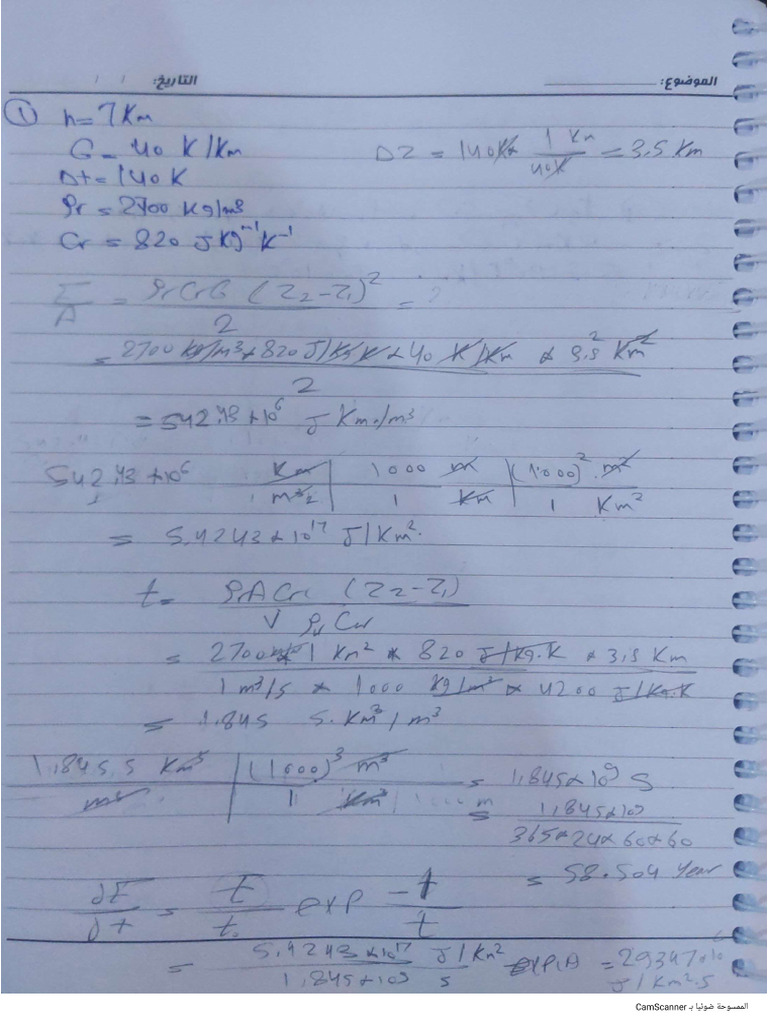 التاريخ: / / الموضوع:
① h = 7 Km
G = 40 K/Km ΔZ = 140K * 1 Km / 40K = 3.5 Km
Δt = 140 K
ρr = 2700 Kg/m3
Cr = 820 J Kg⁻¹ K⁻¹
E/A = ρr Cr G (Z2-Z1)² / 2 =
= 2700 Kg/m3 * 820 J/Kg K * 40 K/Km * 3.5² Km² / 2
= 542.43 * 10⁶ J Km/m³
542.43 * 10⁶ Km/m³ | 1000 m / 1 Km | (1000)² m² / 1 Km²
= 5.4243 * 10¹⁷ J/Km²
t = ρr A Cr (Z2-Z1) / V ρw Cw
= 2700 * 1 Km² * 820 J/Kg.K * 3.5 Km / 1 m³/s * 1000 Kg/m³ * 4200 J/Kg.K
= 1.845 s. Km³/m³
1.845 s Km³ / m³ | (1000)³ m³ / 1 Km³ = 1.845 * 10⁹ s
= 1.845 * 10⁹ / 365 * 24 * 60 * 60
= 58.504 year
dE/dt = E/t. exp -t/t
= 5.4243 * 10¹⁷ J/Km² / 1.845 * 10⁹ s = 293.47 * 10⁶ J/Km².s
الممسوحة ضوئيا بـ CamScanner